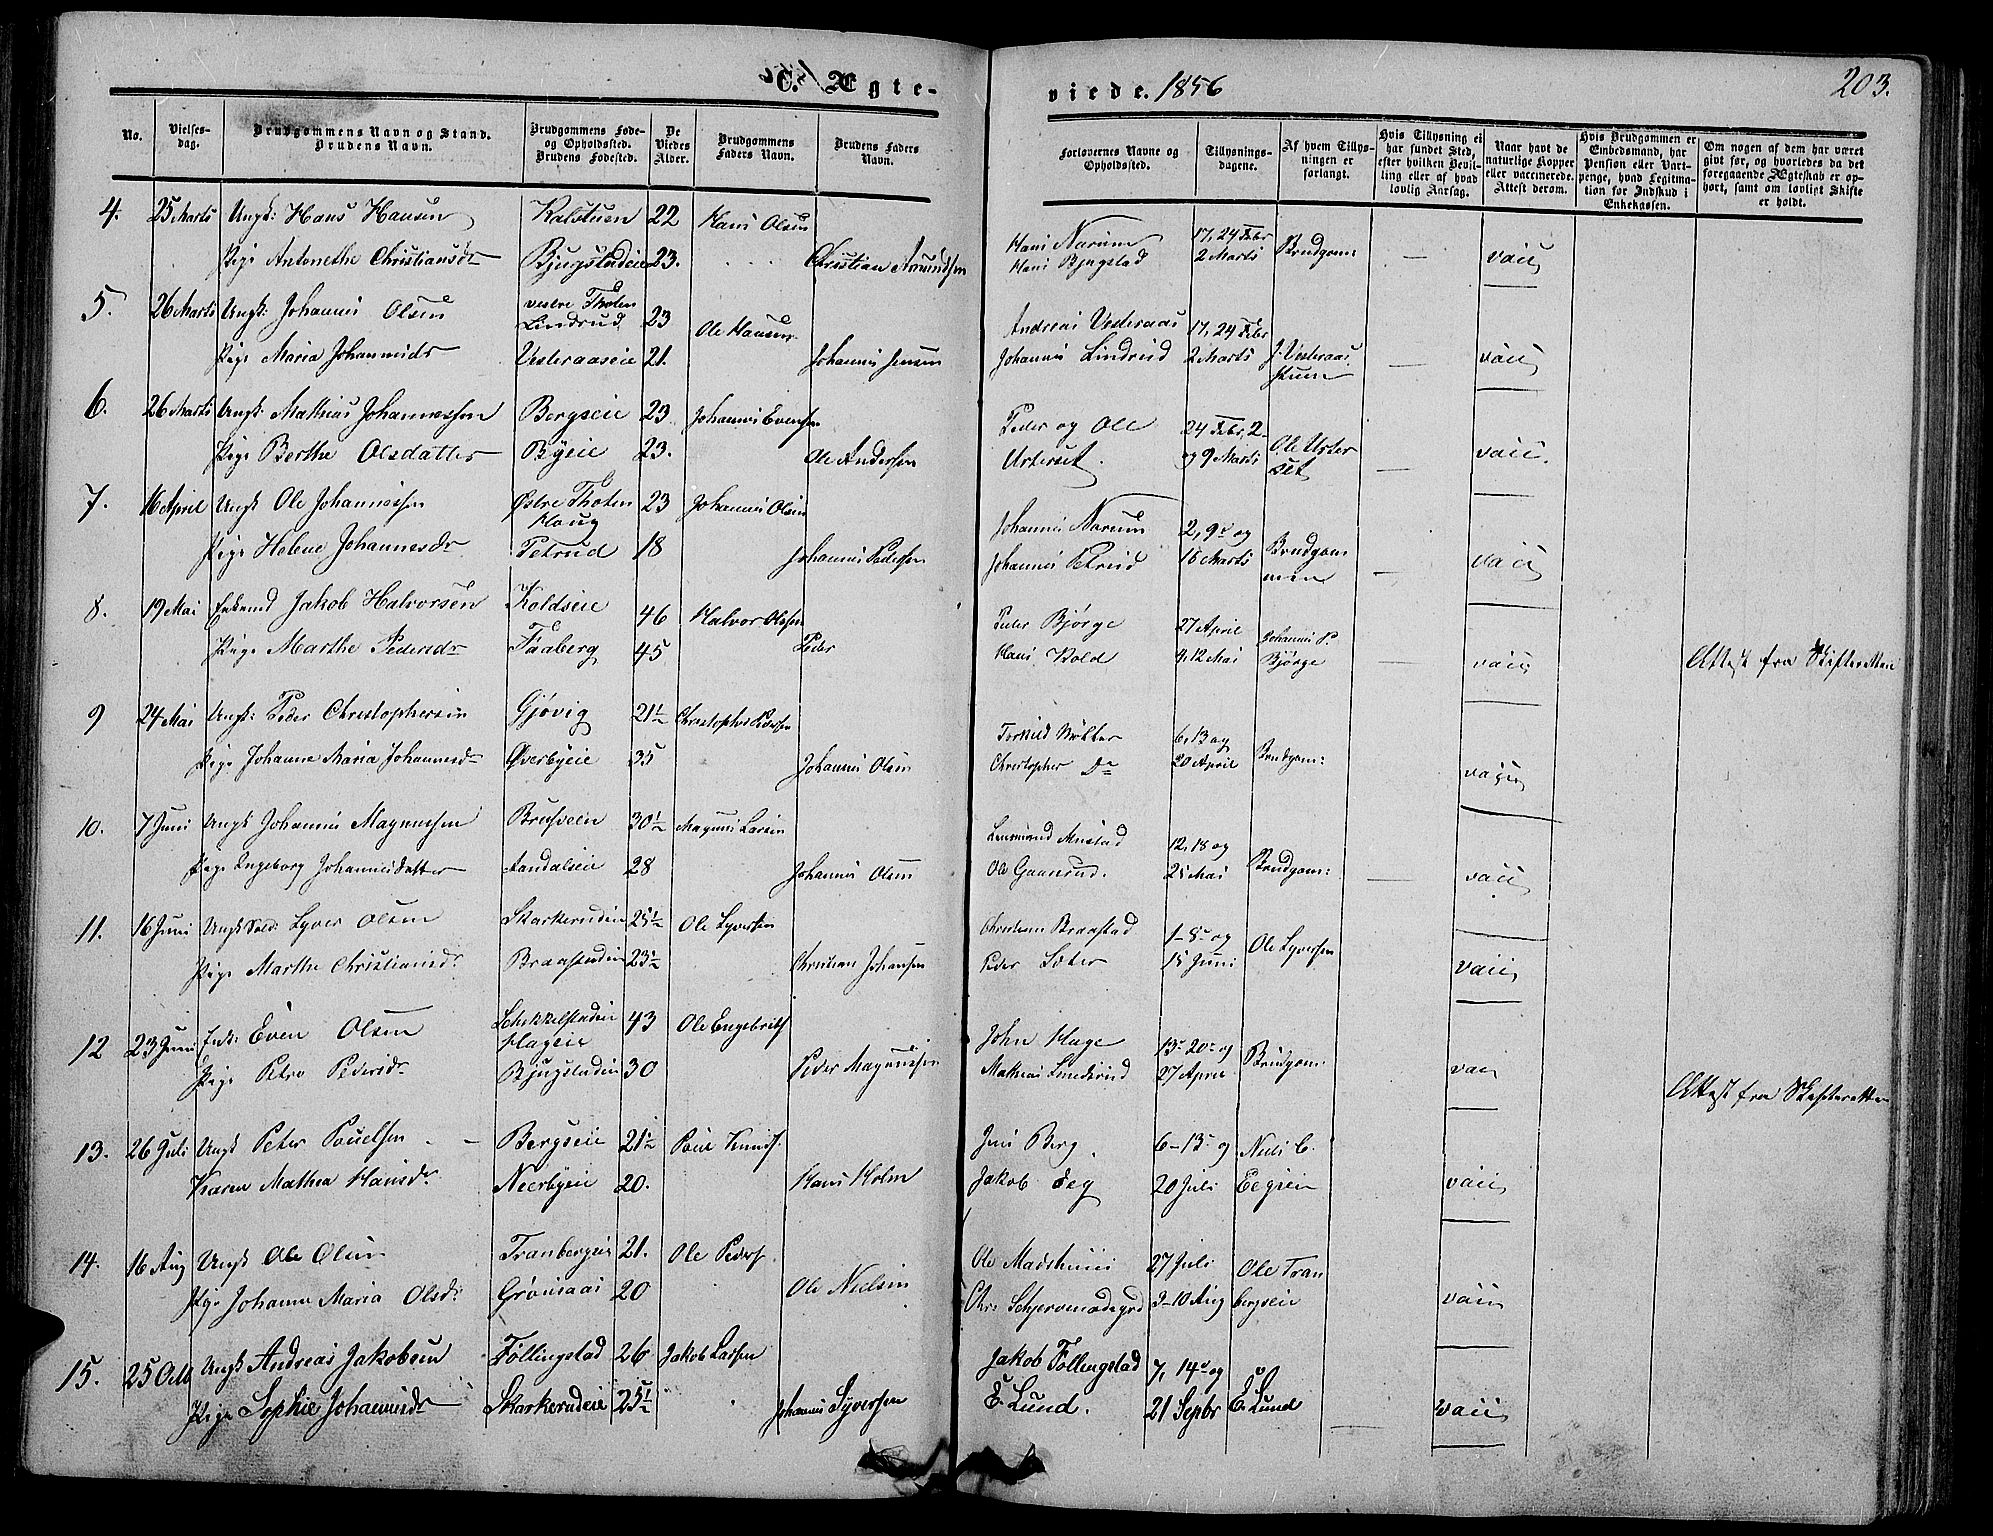 C. Ægte-
viede. 1856
203.
No.
Vielses-
dag.
Brudgommens Navn og Stand.
Brudens Navn.
Brudgommens Føde-
og Opholdssted.
Brudens Fødested.
De
Viedes
Alder.
Brudgommens
Faders Navn.
Brudens Faders
Navn.
Forlovernes Navne og
Opholdssted.
Tillysnings-
dagene.
Af hvem Tillys-
ningen er
forlangt.
Hvis Tillysning ei
har fundet Sted,
efter hvilken Bevil-
ling eller af hvad
lovlig Aarsag.
Naar havt de
naturlige Kopper
eller vaccinerede.
Attest derom.
Hvis Brudgommen er
Embedsmand, har
Pension eller Vart-
penge, hvad Legitma-
tion for Indskud i
Enkekassen.
Om nogen af dem har været
gift før, og hvorledes da det
foregaaende Ægteskab er op-
hørt, samt om lovligt Skifte
er holdt.
4. 25 Marts Ungk: Hans Hansen Kalstuen 22 Hans Olsen Hans Narum 17, 24 Febr
Pige Antonethe Christiansdr Bjugstadeie 23. Christian Amundsen Hans Bjugstad 2 Marts Brudgom: vacc
5. 26 Marts Ungk: Johannes Olsen vestre Thoten
Lindrud 23 Ole Hansen Andreas Vesteraas 17, 24 Febr
Pige Maria Johannesdr Vesteraaseie 21. Johannes Jensen Johannes Lindrud 2 Marts J. Vesteraas vacc
6. 26 Marts Ungk: Mathias Johannessen Bergseie 23 Johannes Evensen Peder og Ole 24 Febr, 2
Pige Berthe Olsdatter Byeie 23. Ole Andersen Ursterset. og 9 Marts Ole Urster
set vacc.
7. 16 April Ungk Ole Johannessen Østre Thoten
Haug 23 Johannes Olsen Johannes Narum 2, 9 og
Pige Helene Johannesdr Petrud 18 Johannes Pedersen Johannes Petrud 16 Marts Brudgom
men vacc
8. 19 Mai Enkemd Jakob Halvorsen Koldseie 46 Halvor Olsen Peder Bjørge 27 April
Pige Marthe Pedersdr Faaberg 45 Peder Hans Kold 4, 12 Mai Johannes P.
Bjørge vacc Attest fra Skifteretten
9 24 Mai Ungk: Peder Christophersen Gjøvig 21½ Christopher Pedersen 6, 13 og
Pige Johanne Maria Johannesdr Øverbyeie 35 Johannes Olsen Christopher Do 20 April Brudgom: vacc
10. 7 Juni Ungk Johannes Magnussen Brusveen 30½ Magnus Larsen Lensmand Mustad 12, 18 og
Pige Ingeborg Johannesdatter Aandalseie 28 Johannes Olsen Ole Gaarsrud. 25 Mai Brudgom: vacc
11. 16 Juni Ungk Sold: Syver Olsen Skarkerudeie 25½ Ole Syversen Christian Braastad 1-8 og
Pige Marthe Christiansdr Braastadeie 23½ Christian Johansen Peder Sæter 15 Juni Ole Syversen vacc
12 23 Juni Enk: Even Olsen Schikkelstadeie
Hageie 43 Ole Engebrets John Hage 13 20 og
Pige Petra Pedersdr Bjugstadeie 30 Peder Magnussen Mathias Lunderud 27 April Brudgom: vacc
Attest fra Skifteretten
13. 26 Juli Ungk Peter Pouelsen Bergseie 21½ Poul Knuds. Jens Berg 6-13 og Niels C.
Karen Mathea Hansdr Neerbyeie 20. Hans Holm Jakob Eeg 20 Juli Eegeie vacc
14. 16 Aug Ungk Ole Olsen Tranbergeie 21. Ole Peders. Ole Madshuus 27 Juli Ole Tran
Pige Johanne Maria Olsdr Grønaas 20 Ole Nielsen 3-10 Aug bergseie vacc
15. 25 Octb Ungk Andreas Jakobsen Føllingstad 26 Jakob Larsen Jakob Føllingstad 7, 14 og
Pige Sophie Johannesdr Skarkerudeie 25½ Johannes Syversen E. Lund. 21 Sepbr E. Lund vacc